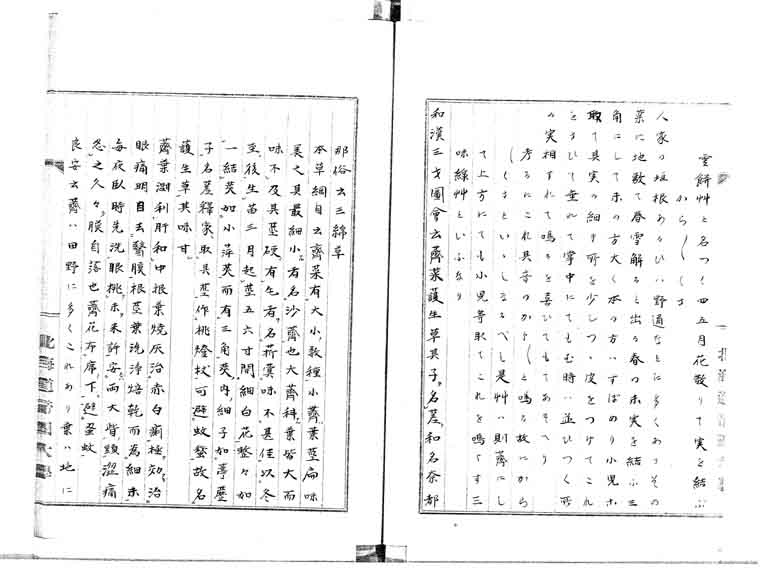 雪餅艸と名つく四五月花散りて実を結ぶ
からしくさ
人家の垣根あるひハ野道なとに多くあつその
葉に地敷て春雪解ると出る春の末実を結ふ三
角にして末の方大く本の方ハすばのり小児ホ
取て其実の細き所を少しつゝ皮をつけてこれ
をさひて垂れて掌中にてもむ時ハ並ひつく所
の実相すれて鳴るを喜ひてもてあそへり
考るにこれ其子のからしと鳴る故にから
しくさといゝしなるべし是艸ハ則薺にし
て上方にても小児等取てこれを鳴らす三
味線艸といふなり
和漢三才圖會云薺葉護生草其子名蒫和名奈都
那俗云三線草
本草綱目云薺菜有大小数種小薺葉莖扁味
美之其最細小者名沙薺也大薺科葉皆大而
味不及其莖硬有毛者名菥蓂味不甚佳以冬
至後生苗三月起莖五六寸開細白花整々如
一結莢如小萍莢而有三角莢内細子如葶藶
子名蒫釋家取其莖作桃燈杖可避蚊蛾故名
護生草其味甘
薺葉濕利肝和中根葉燒灰治赤白痢極効治
眼痛明目去翳膜根莖葉洗浄焙乾而為細末
每夜臥時先洗眼桃末米許安両大眥頭澀痛
忍之久々膜自落也薺花布席下避蚤蚊
良安云薺ハ田野に多くこれあり葉ハ地に
北海道帝國大學